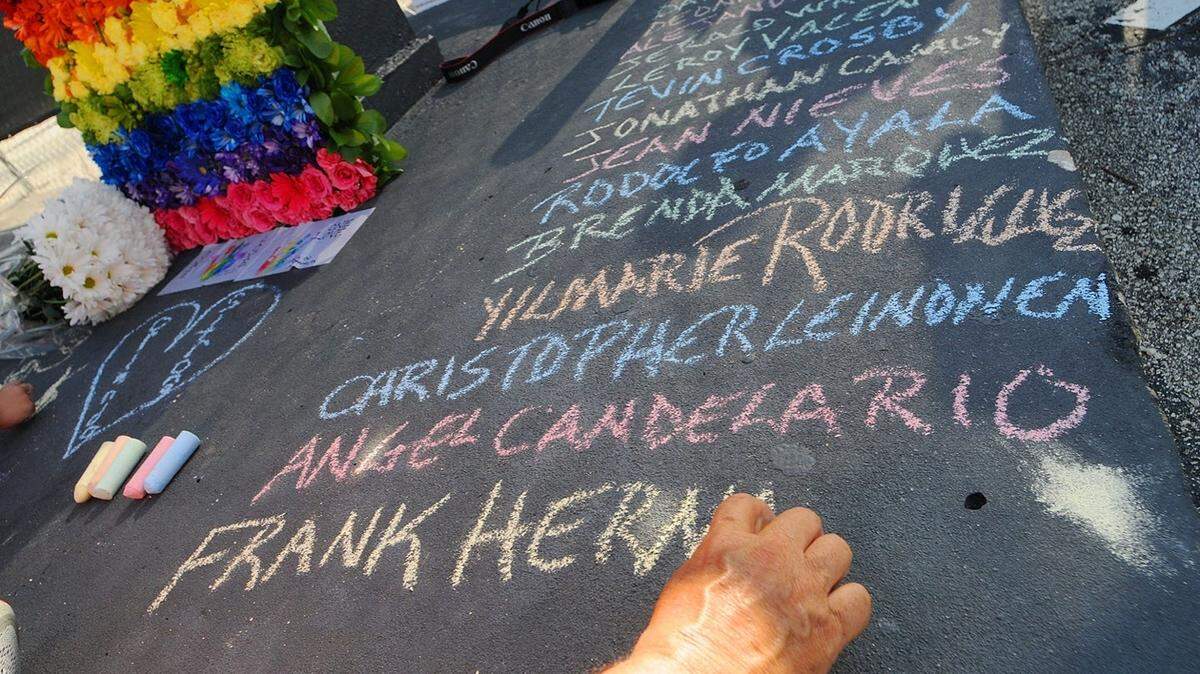 LEROY VALEN
TEVIN CROSBY
JONATHAN CAMUY
JEAN NIEVES
RODOLFO AYALA
BRENDA MARQUEZ
YILMARIE RODRIGUES
CHRISTOPHER LEINONEN
ANGEL CANDELARIO
FRANK HERN
Canon
Canon